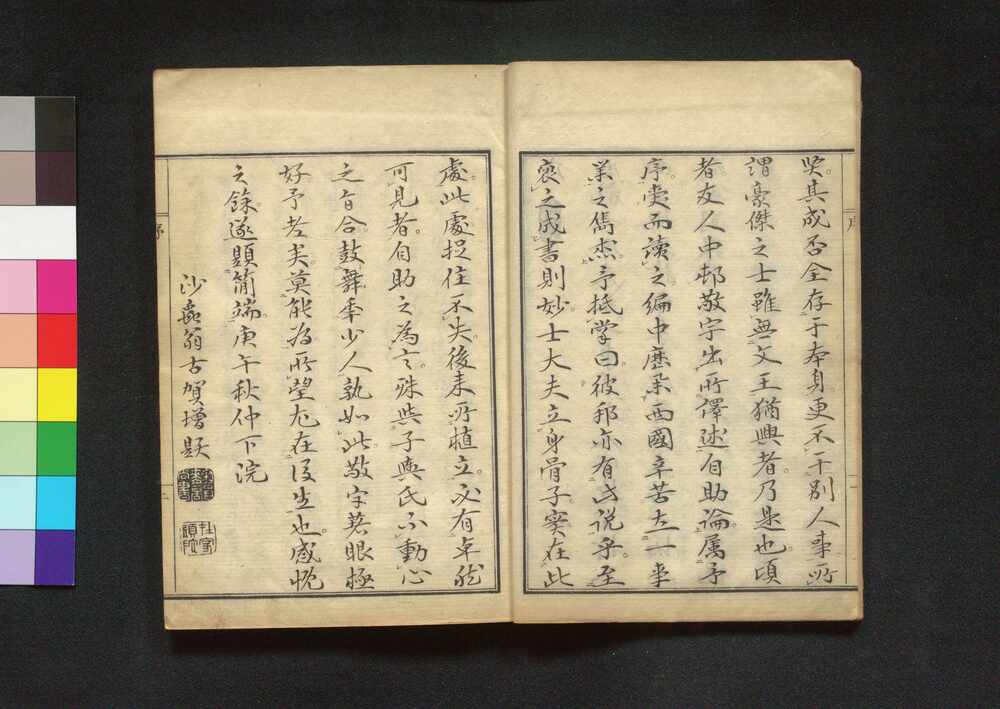 奬其成否全存于本身更不干別人事所
謂豪傑之士雖無文王猶興者乃是也頃
者友人中邨敬宇出所譯述自助論属予
序受而讀之編中歷擧西國辛苦立一事
業之雋杰予抵掌曰彼邦亦有此説乎至
裒之成書則妙士大夫立身骨子實在此
處此處捉住不失後来所植立必有卓然
可見者自助之為言殊與子輿氏不動心
之旨合鼓舞年少人孰如此敬宇着眼極
好予老矣莫能為所望尤在後生也感悅
之餘遂題簡端庚午秋仲下浣
沙蟲翁古賀增題
序